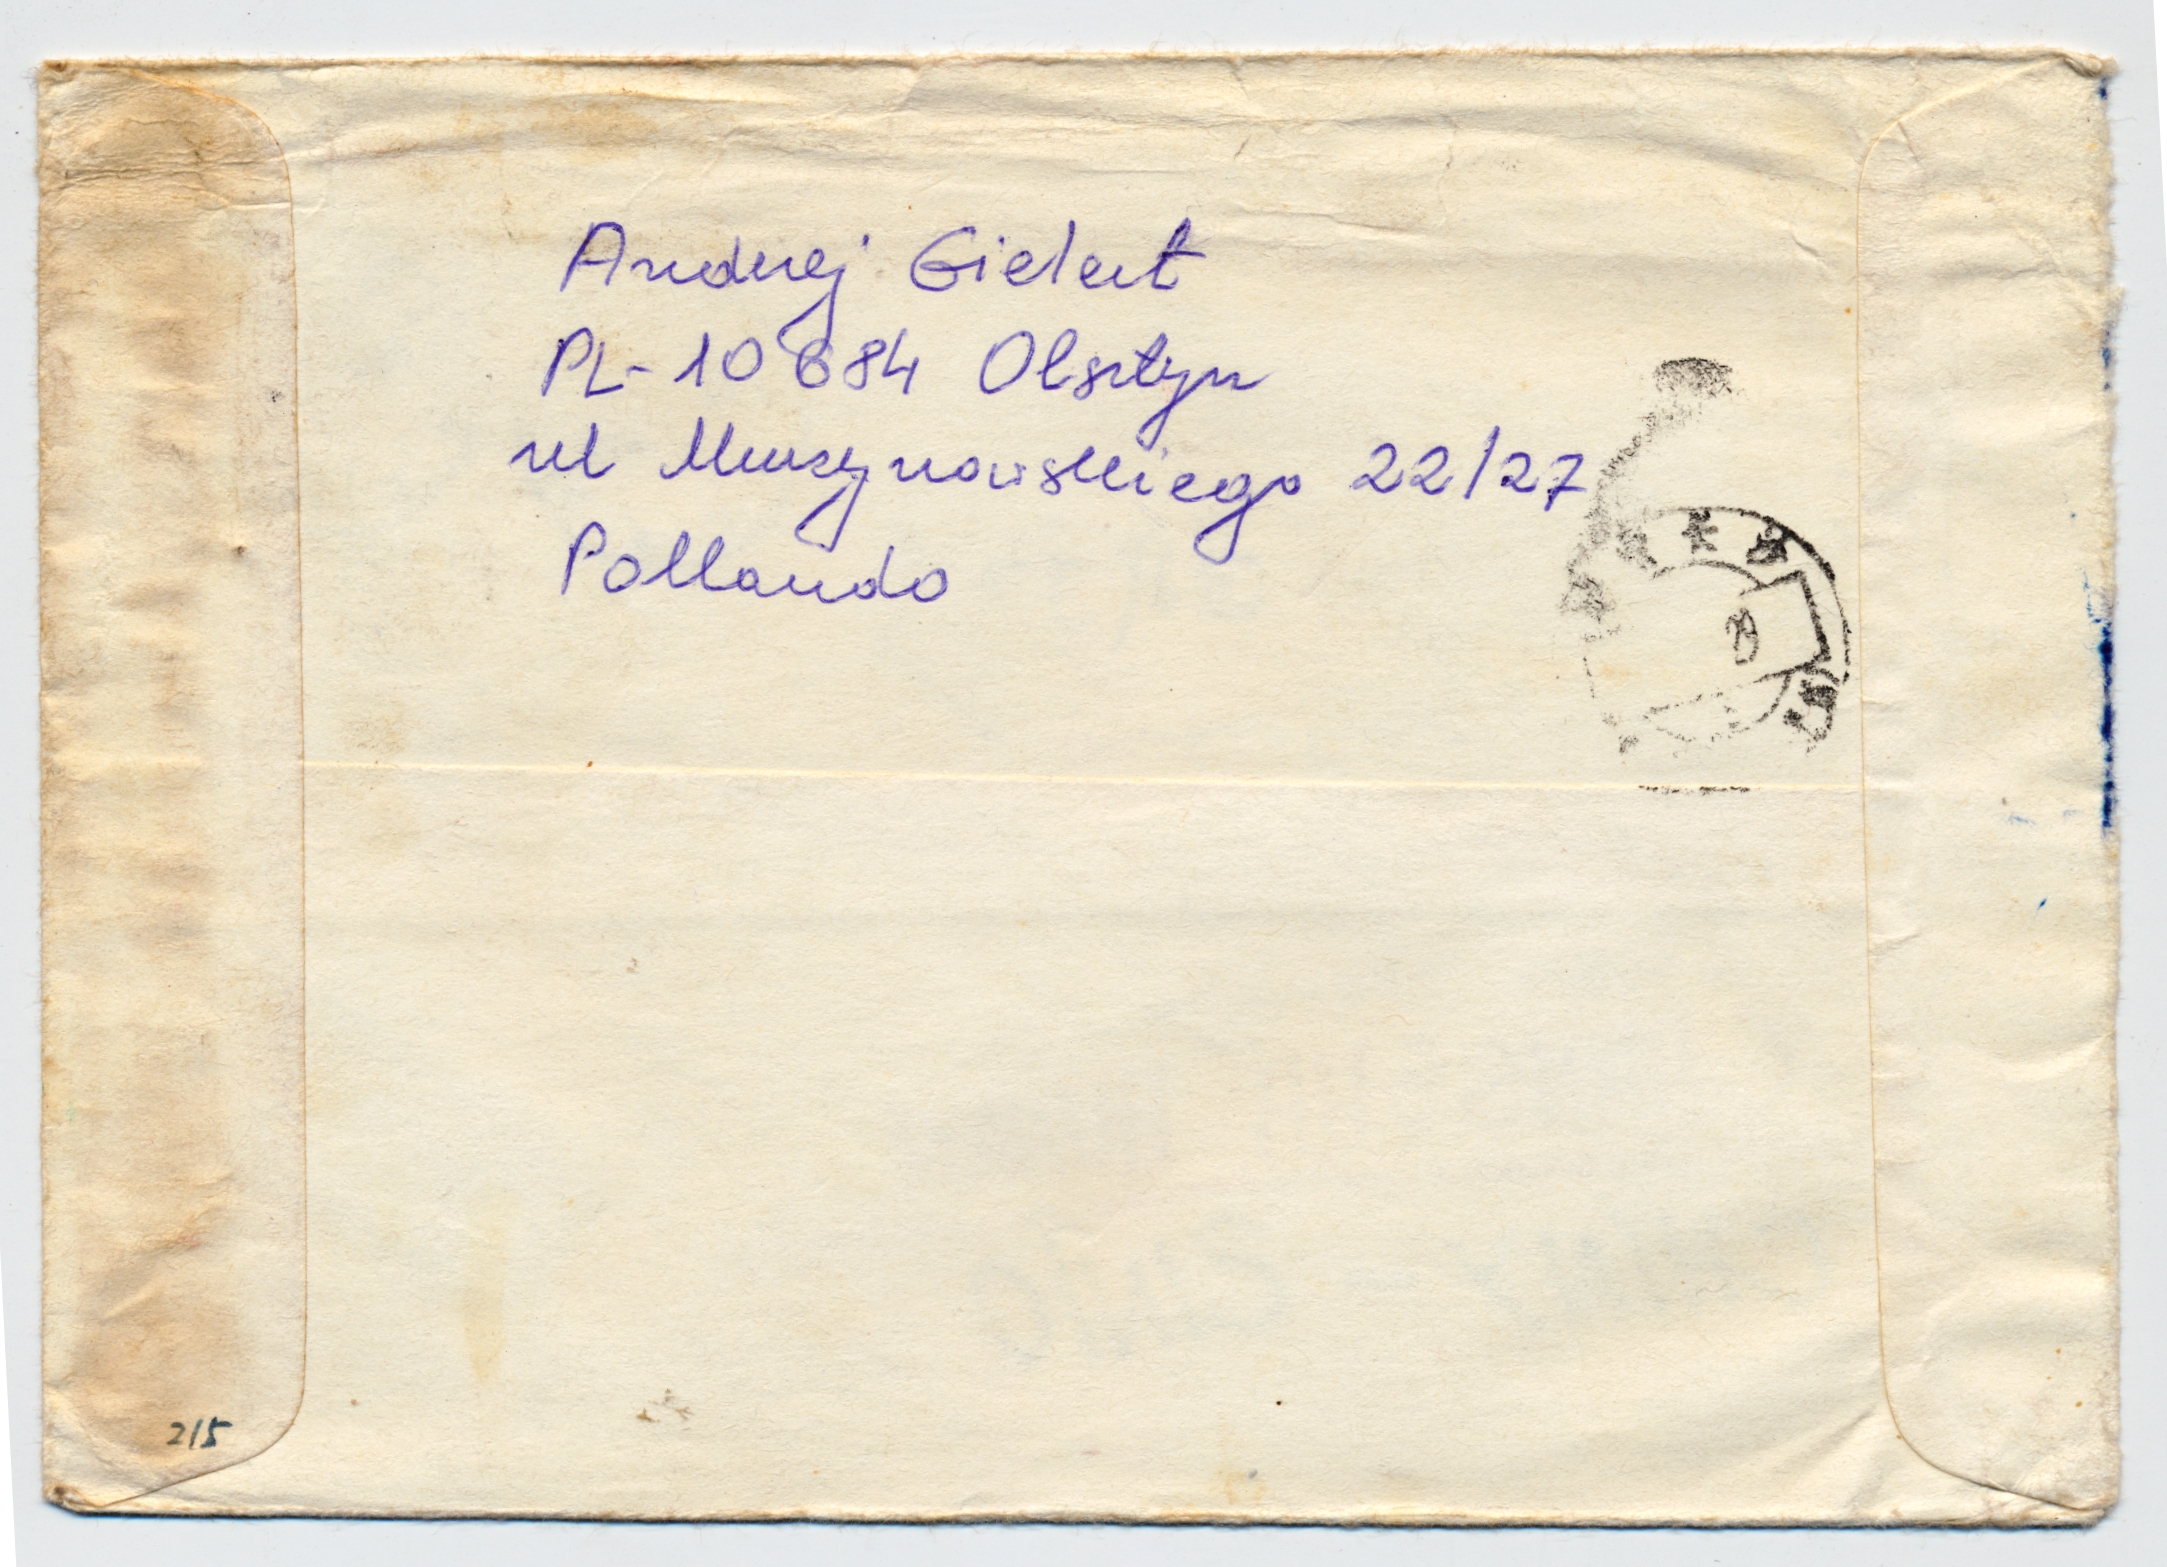 Andrzej Gielert
PL-10 684 Olsztyn
ul Murzynowskiego 22/27
Pollando
215